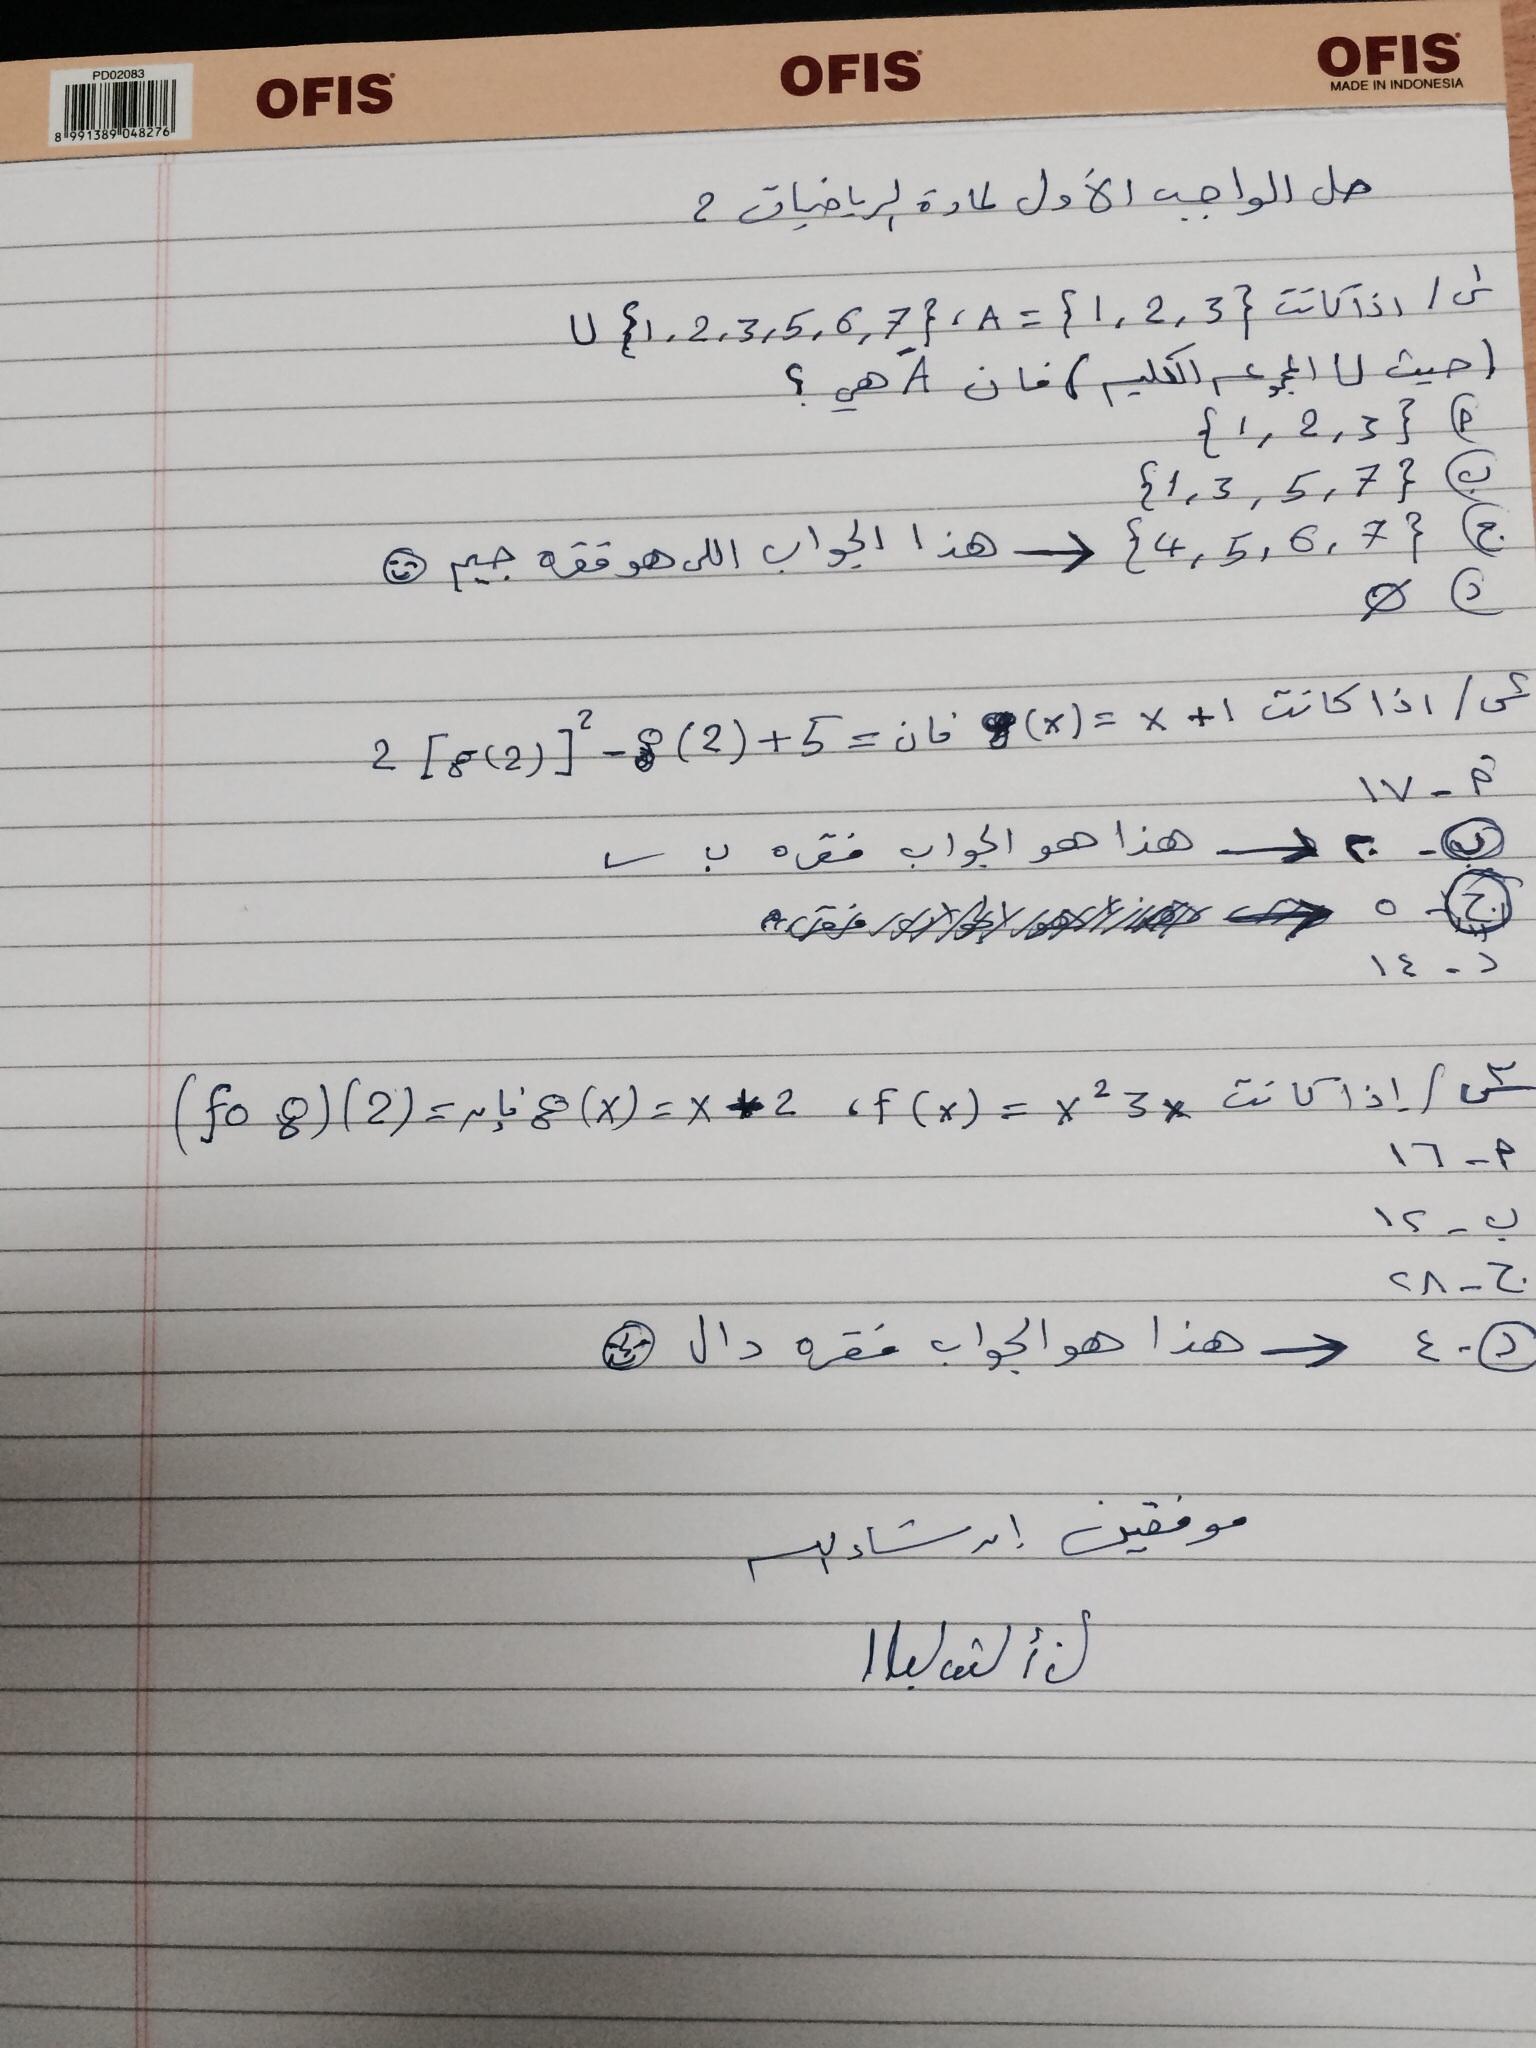 PD02083
8 991389 048276
OFIS OFIS OFIS
MADE IN INDONESIA
حل الواجب الأول لمادة الرياضيات 2
س١/ اذا كانت U {1,2,3,5,6,7} ، A = {1,2,3}
(حيث U المجموعة الكلية) فان Ā هي ؟
أ {1,2,3}
ب {1,3,5,7}
ج {4,5,6,7} → هذا الجواب اللي هو فقره جيم
د ∅
س٢/ اذا كانت g(x) = x + 1 فان 2[g(2)]² - g(2) + 5 =
أ - ١٧
ب - ٢٠ → هذا هو الجواب فقره ب
ج - ٥ →
د - ١٤
س٣/ إذا كانت f(x) = x² 3x ، g(x) = x + 2 فإن (f o g)(2) =
أ - ١٦
ب - ١٢
ج - ٢٨
د - ٤ → هذا هو الجواب فقره دال
موفقين إن شاء الله